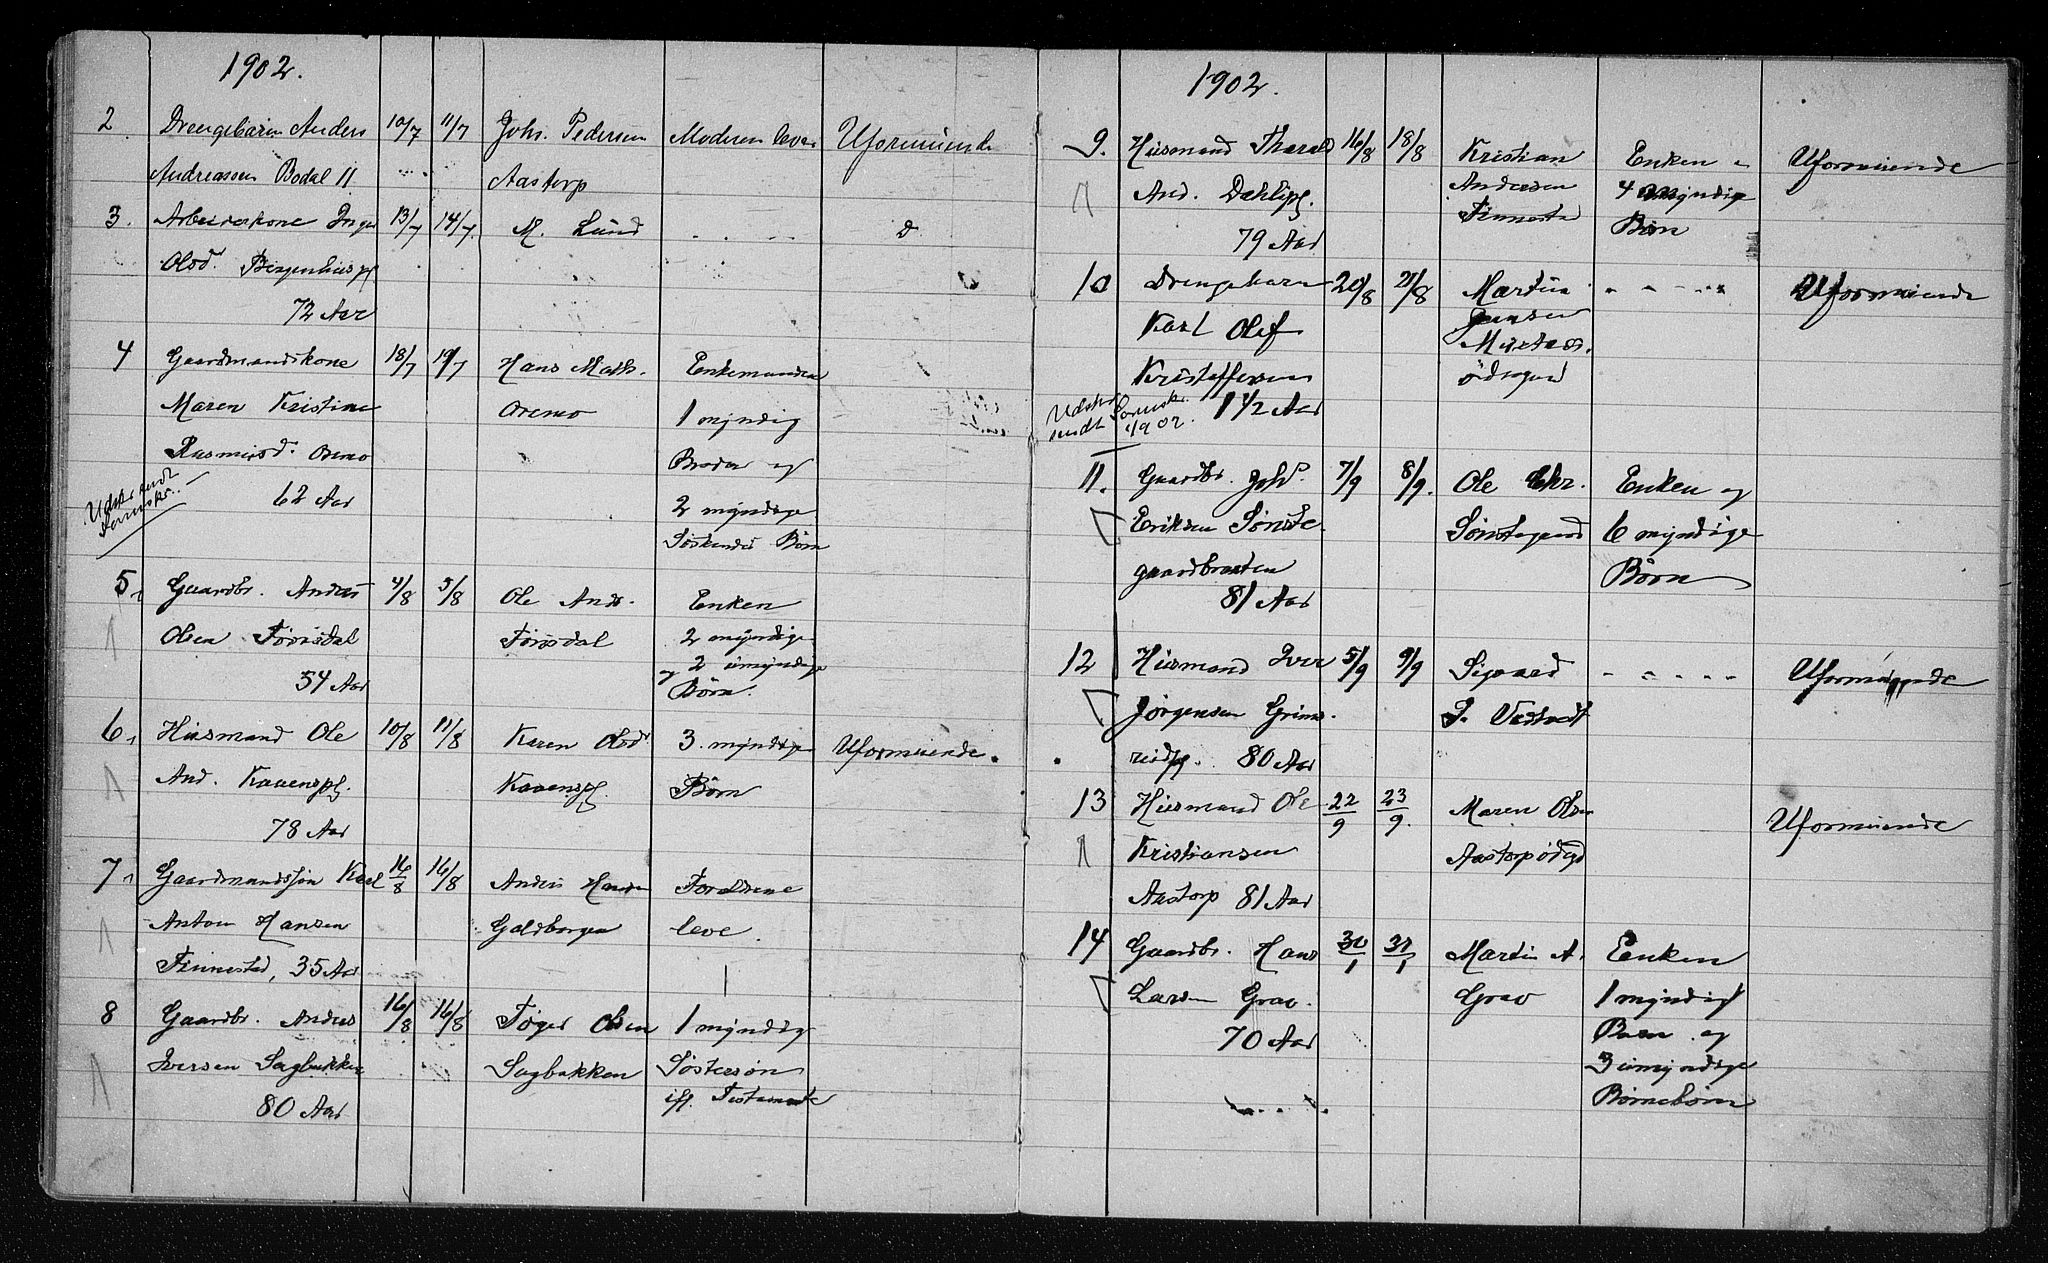 1902.
2. Drengebarn Anders 10/7 11/7 Johs. Pedersen Moderen lever Uformuende
Andreassen Bodal 11 Aastorp
3. Arbeiderkone Inger 13/7 14/7. M. Lund - - - - D
Olsd. Bergenhuspl
72 Aar
4 Gaardmandskone 18/7 19/7 Hans Math. Enkemanden
Maren Kristine Oremo 1 myndig
Rasmusd. Oremo Broder og
62 Aar 2 myndige
Søskendes Børn
Udskr. sendt
Sorenskr.
5. Gaardbr. Anders 4/8 5/8 Ole Ands. Enken
Olsen Torisdal Torisdal 2 myndige
54 Aar og 2 umyndige
Børn.
6. Husmand Ole 10/8 11/8 Karen Olsd 3 myndige Uformuende.
And. Kaaenspl. Kaaenspl. Børn
78 Aar
7. Gaardmandssøn Karl 16/8 16/8 Anders Hansen Forældrene
Anton Hansen Goldborgen leve.
Finnestad, 35 Aar
8 Gaardbr. Anders 16/8 16/8 Tøger Olsen 1 myndig
Iversen Sagbakken Sagbakken Søstersøn
80 Aar ifl. Testamente
1902.
9. Husmand Tharald 16/8 18/8 Kristian Enken - Uformuende
And. Dahlspl. Andersen 4 myndige
79 Aar Finnestad Børn
10 Drengebarn 20/8 21/8 Martin - - - - - Uformuende
Karl Olef Jensen
Kristoffersen
1 1/2 Aar ødegaard
Udskr.
sendt Sorensk.
1902.
11. Gaardbr. Joh. 7/9 8/9. Ole Chr. Enken og
Eriksen Sønste- Sønstegaard 6 myndige
gaardbraaten Børn
81 Aar
12 Husmand Iver 5/9 9/9 Sigvard - - - - - Uformuende
Jørgensen Grims-
rudpl. 80 Aar
13 Husmand Ole 22/9 23/9. Maren Olsen Uformuende
Kristiansen Aastorpødegd
Aastorp 81 Aar
14 Gaardbr. Hans 30/1 31/1 Martin A. Enken
Larsen Grav. Grav 1 myndigt
70 Aar Barn og
3 umyndige
Børnebørn